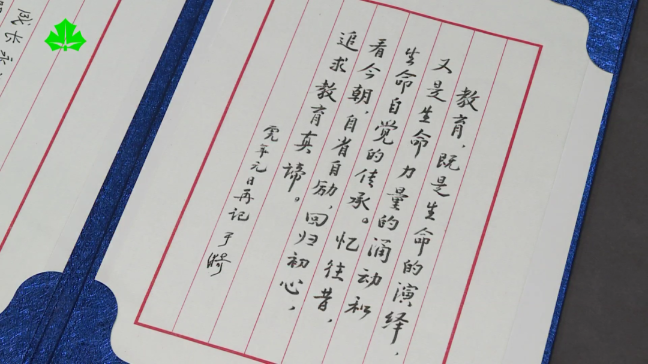 教育，既是生命的演绎，
又是生命力量的涌动和
生命自觉的传承。忆往昔，
看今朝，自省自励，回归初心，
追求教育真谛。
元日再记 于漪
成长